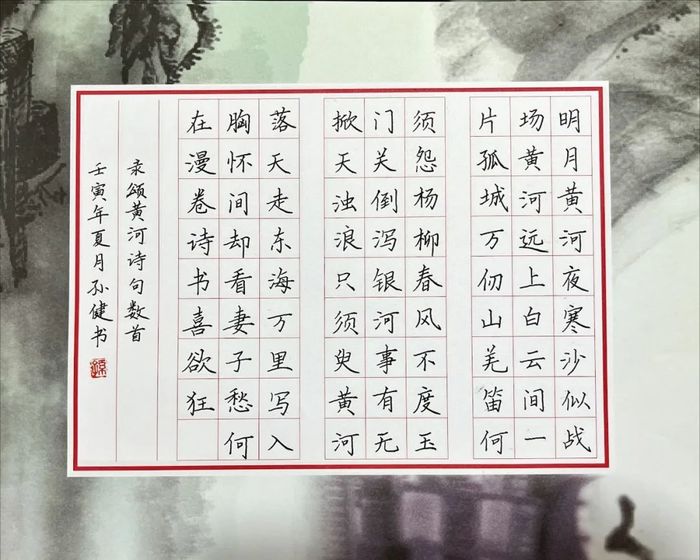 明月黄河夜寒沙似战
场黄河远上白云间一
片孤城万仞山羌笛何
须怨杨柳春风不度玉
门关倒泻银河事有无
掀天浊浪只须臾黄河
落天走东海万里写入
胸怀间却看妻子愁何
在漫卷诗书喜欲狂
录颂黄河诗句数首
壬寅年夏月孙健书